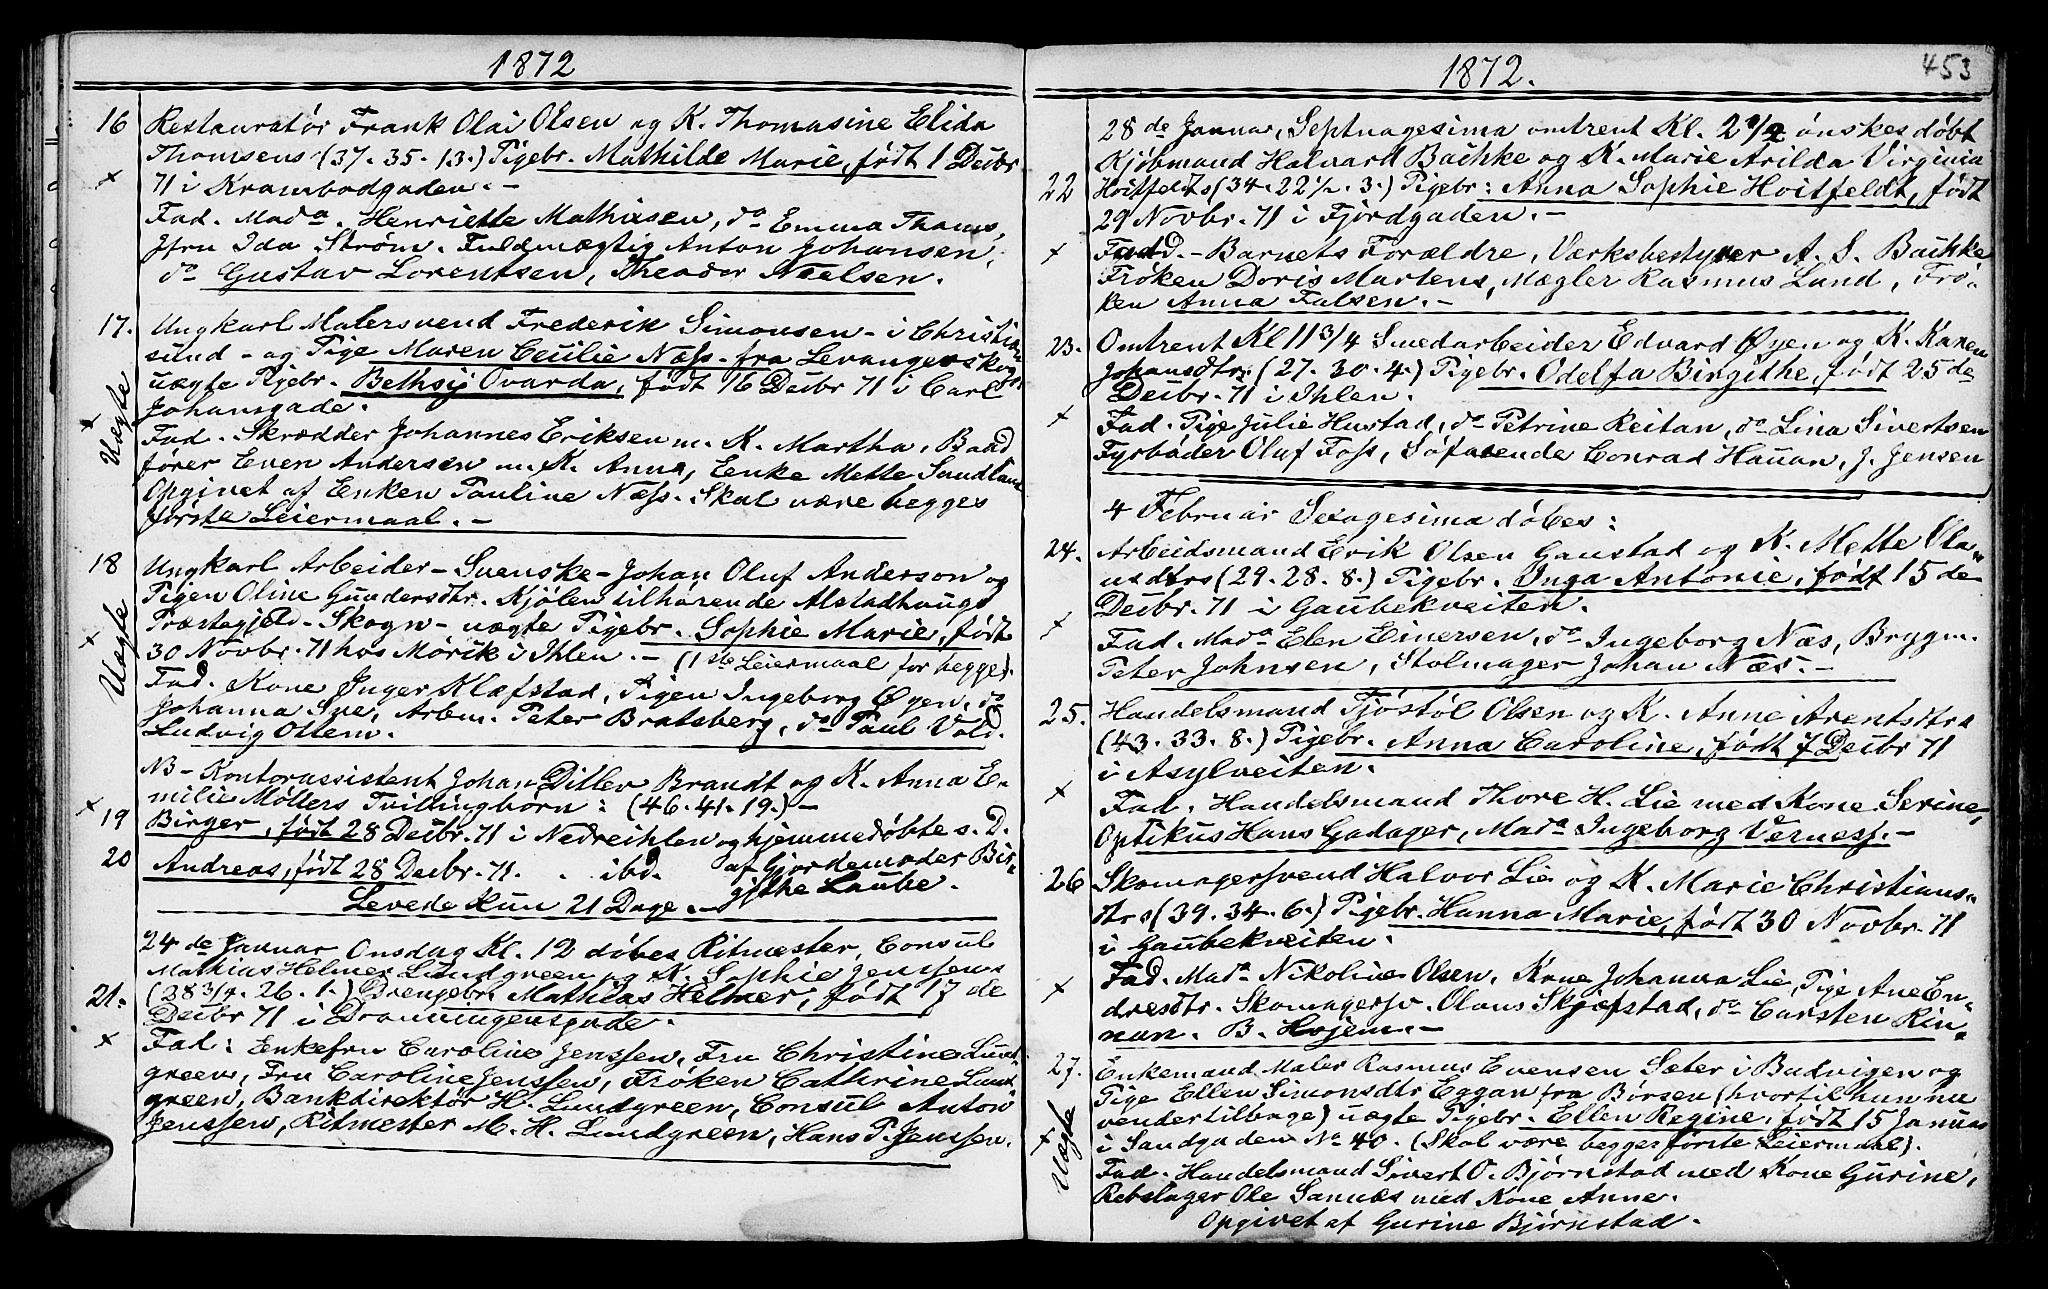 1872
16 Restauratør Frank Olai Olsen og K. Thomasine Elida
Thomsens (37. 35. 13.) Pigebr. Mathilde Marie, født 1 Decbr
71 i Krambodgaden. -
Fad. Mada. Henriette Mathisen, do Emma Thams,
Jfru Ida Strøm. Fuldmægtig Anton Johansen,
do Gustav Lorentsen, Theodor Neelsen.
17. Ungkarl Malersvend Frederik Simonsen - i Christian
sund - og Pige Maren Cecilie Næss. fra Levangerskog
uægte Pigebr. Bethsy Ovarda, født 16 Decbr 71 i Carl
Johansgade.
Uægte
Fad. Skrædder Johannes Eriksen m. K. Martha, Baad
fører Even Andersen m. K. Anna, Enke Mette Sundland
Opgivet af Enken Pauline Næss. Skal være begges
første Leiermaal. -
18 Ungkarl Arbeider - Svenske - Johan Oluf Anderson og
Pigen Oline Gundersdtr. Kjølen tilhørende Alstadhougs
Præstegjæld - Skogn - uægte Pigebr. Sophie Marie, født
30 Novbr. 71 hos Mørik i Ihlen. - (1ste Leiermaal for begge).
Uægte
Fad. Kone Inger Klæfstad, Pigen Ingeborg Øyen, do
Johanna Sve, Arbm. Peter Bratsberg, do Paul Vold.
Ludvig Ottem.
NB - Kontorassistent Johan Ditlev Brandt og K. Anna E-
milie Møllers Tvillingbørn: (46. 41. 19.) -
19 Birger, født 28 Decbr. 71 i Nedreihlen og hjemmedøbte s. D.
20 Andreas, født 28 Decbr. 71. . ibd. af Gjordemoder Bir-
githe Laube.
Levede kun 21 Dage. -
24de Januar Onsdag Kl. 12 døbes Ritmester, Consul
Mathias Helmer Lundgreen og K. Sophie Jenssens
21. (28 3/4. 26. 1.) Drengebr. Mathias Helmer, født 17 de
Decbr 71 i Dronningensgade.
Fad: Enkefru Caroline Jenssen, Fru Christine Lund
green, Fru Caroline Jenssen, Frøken Cathrine Lund
green, Bankdirektør H. Lundgreen, Consul Anton
Jenssen, Ritmester M. H. Lundgreen, Hans P. Jenssen.
1872.
453
28de Januar, Septuagesima omtrent Kl. 2 1/2 ønskes døbt
Kjøbmand Halvard Bachke og K. Marie Arilda Virginia
22 Hoitfeldts (34. 22 1/2. 3.) Pigebr: Anna Sophie Hoitfeldt, født
29 Novbr. 71 i Fjordgaden. -
Fadd. - Barnets Forældre, Værksbestyrer A. S. Bachke
Frøken Doris Martens, Mægler Rasmus Lund, Frø-
ken Anna Falsen. -
23. Omtrent Kl 11 3/4 Smedarbeider Edvard Øyen og K. Karen
Johansdtr: (27. 30. 4.) Pigebr. Odelfa Birgithe, født 25 de
Decbr. 71 i Ihlen.
Fad. Pige Julie Hustad, do Petrine Reitan, do Lina Sivertsen
Fyrbøder Oluf Foss, Søfarende Conrad Hauan, J. Jensen
4 Februar Sexagesima døbes:
24. Arbeidsmand Erik Olsen Ganstad og K. Mette Ola-
usdtrs (29. 28. 8.) Pigebr. Inga Antonie, født 15 de
Decbr. 71 i Gaubekveiten.
Fad. Mada Elen Einersen, do Ingeborg Næs, Brygm.
Peter Johnsen, Stolmager Johan Næs. -
25. Handelsmand Tjøstøl Olsen og K. Anne Arentsdtrs
(43. 33. 8.) Pigebr. Anna Caroline, født 7 Decbr 71
i Asylveiten.
Fad. Handelsmand Thore H. Lie med Kone Serine,
Optikus Hans Gadager, Mada Ingeborg Verness. -
26 Skomagersvend Halvor Lie og K. Marie Christians-
dtrs (39. 34. 6.) Pigebr. Hanna Marie, født 30 Novbr. 71
i Gaubekveiten.
Fad. Mada Nikoline Olsen, Kone Johanna Lie, Pige Ane En-
dresdtr. Skomagersv. Olaus Skjefstad, do Carsten Rin-
nan. B. Hojem. -
27. Enkemand Maler Rasmus Evensen Sæter i Budvigen og
Pige Ellen Simonsdtr Eggan fra Børsen (hvortil hun nu
vender tilbage) uægte Pigebr. Ellen Regine, født 15 Januar
i Sandgaden No 40. (Skal være begges første Leiermaal).
Uægte
Fad. Handelsmand Sivert O. Bjørnstad med Kone Gurine,
Rebslager Ole Sannæs med Kone Anne.
Opgivet af Gurine Bjørnstad.